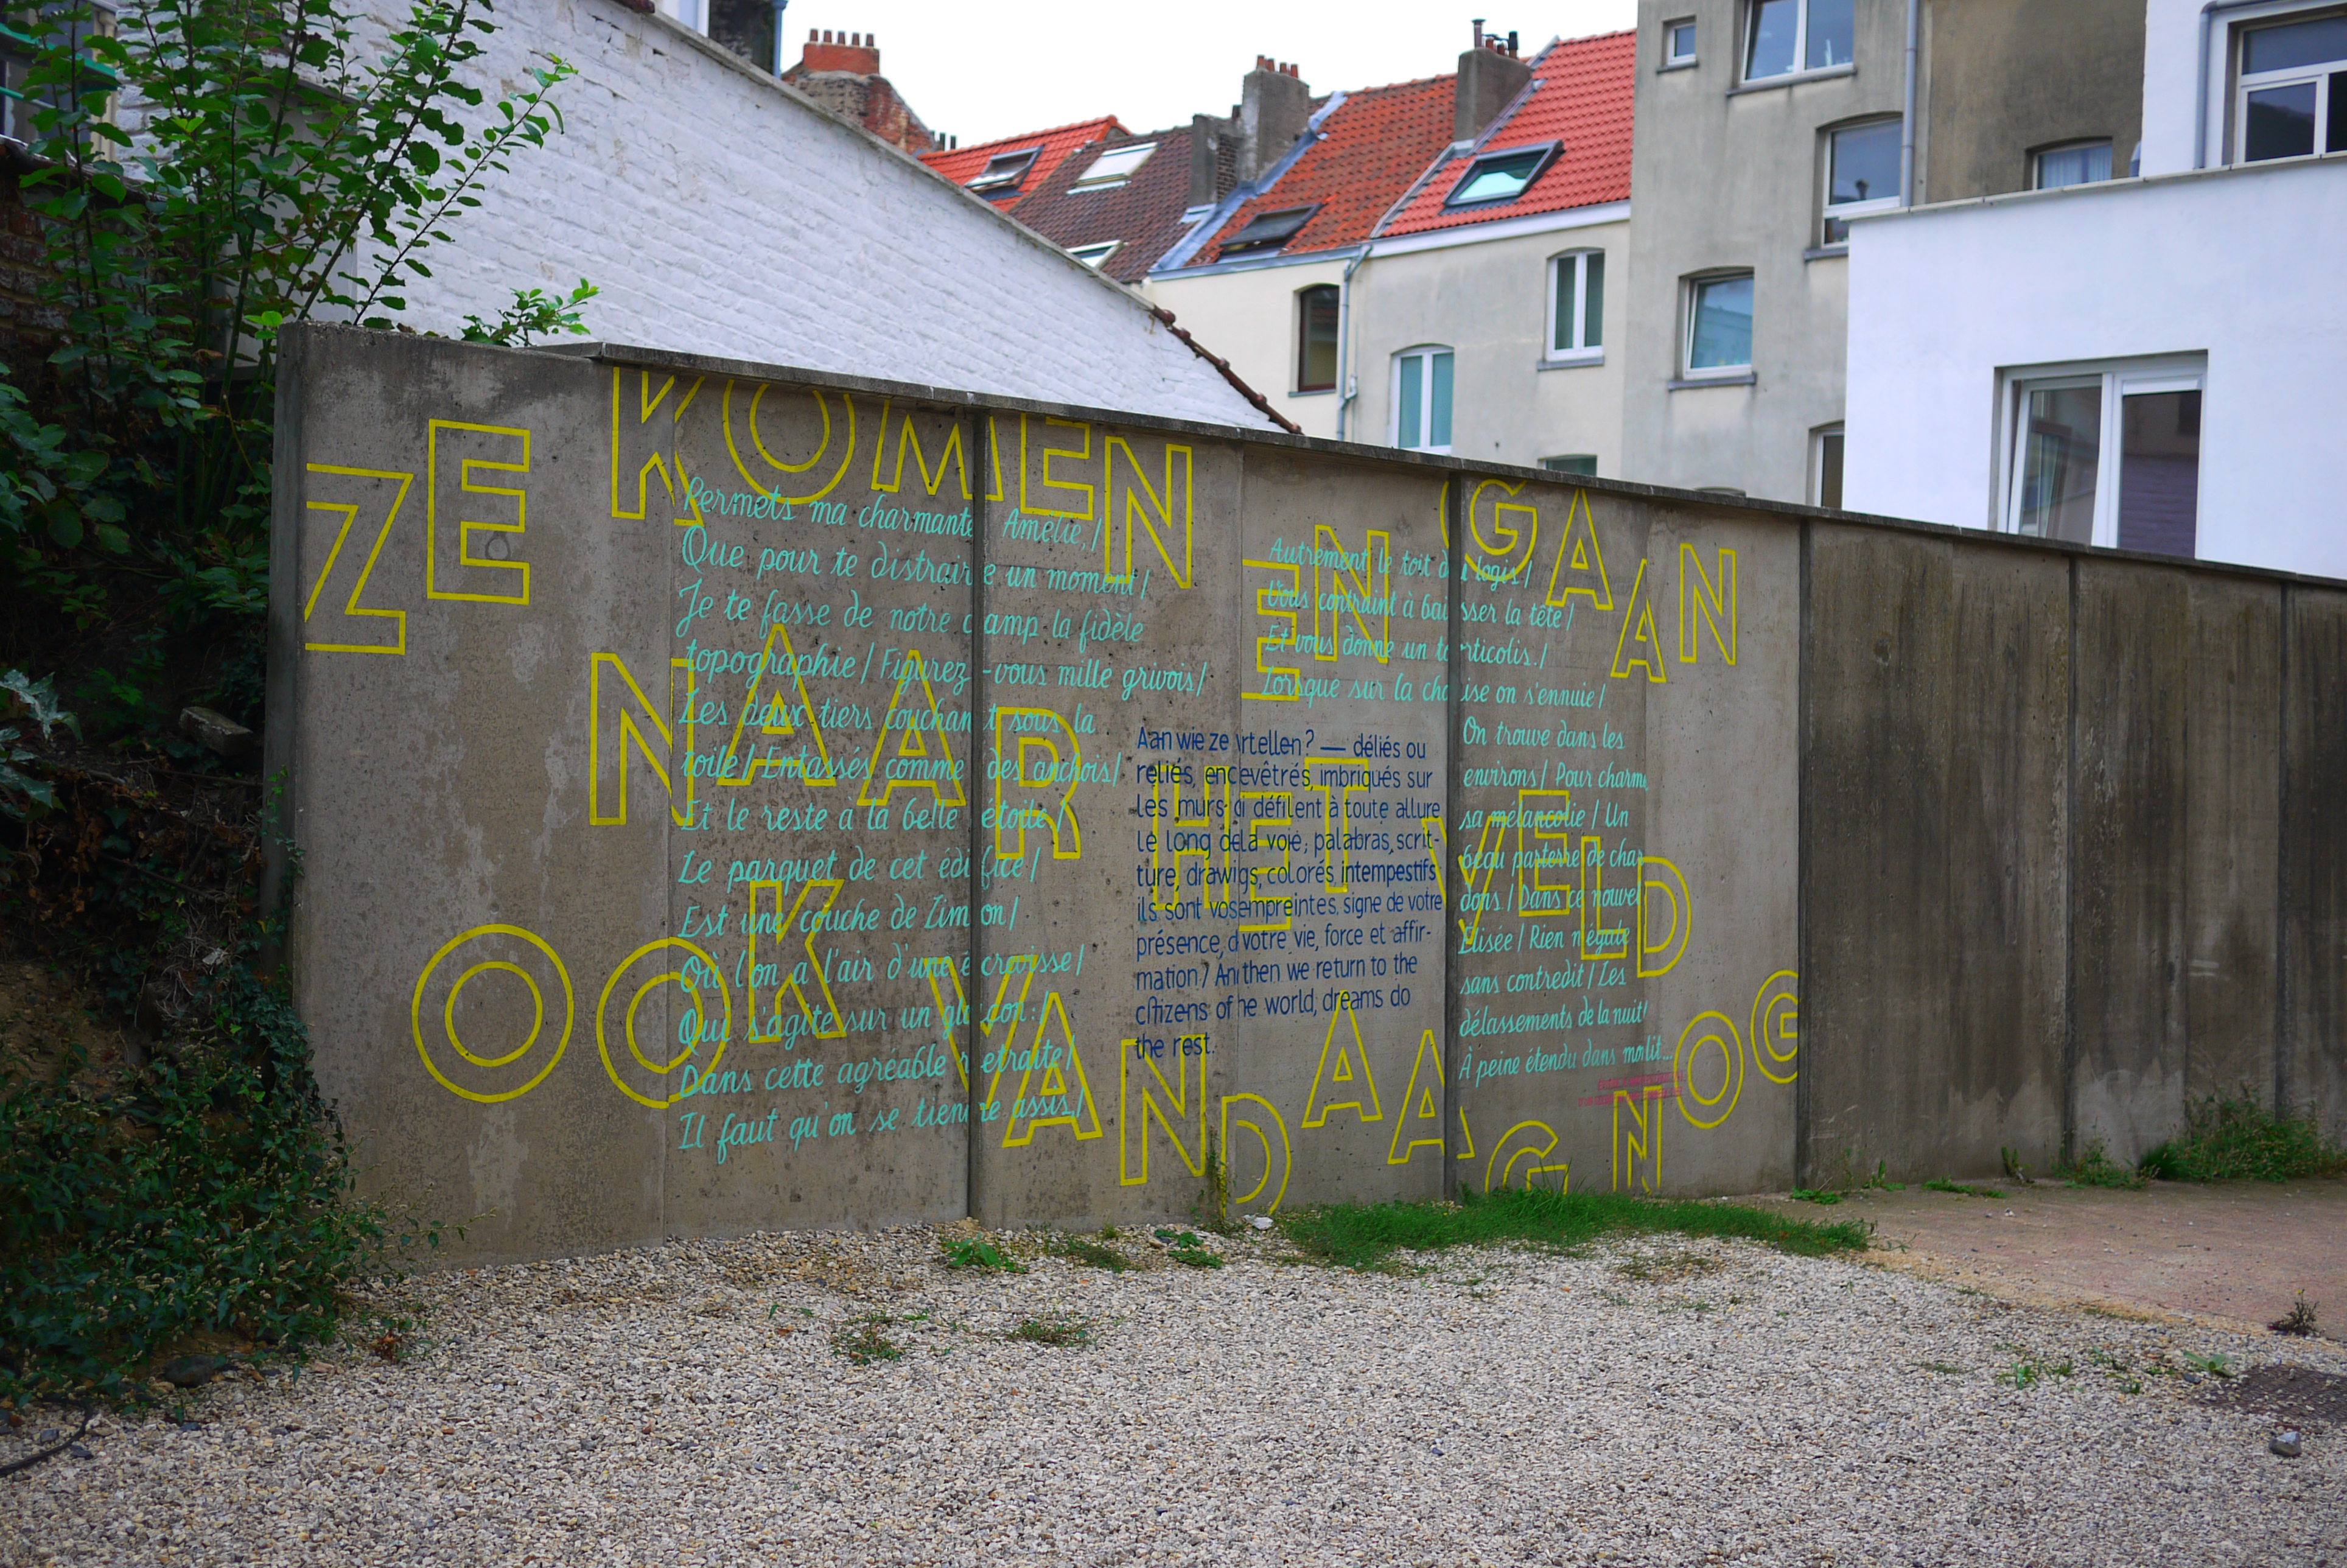 ZE KOMEN EN GAAN
NAAR HET VELD
OOK VANDAAG NOG
Permets ma charmante Amélie,/
Que pour te distraire un moment/
Je te fasse de notre camp la fidèle
topographie/ Figurez-vous mille grivois/
Les deux tiers couchant sous la
toile/ Entassés comme des anchois/
Et le reste à la belle étoile/
Le parquet de cet édifice/
Est une couche de Limon/
Où l'on a l'air d'une écrevisse/
Qui s'agite sur un glaçon:/
Dans cette agréable retraite/
Il faut qu'on se tienne assis,/
Autrement le toit du logis/
Vous contraint à baisser la tête/
Et vous donne un torticolis./
Lorsque sur la chaise on s'ennuie/
On trouve dans les
environs/ Pour charme
sa mélancolie/ Un
beau parterre de char
dons/ Dans ce nouvel
Elisée/ Rien n'égale
sans contredit/ Les
délassements de la nuit!
À peine étendu dans mon lit...
Aan wie ze rtellen? — déliés ou
reliés, encevêtrés, imbriqués sur
les murs qi défilent à toute allure
le long dela voie; palabras, scrit-
ture, drawigs, colorés, intempestifs
ils sont vos empreintes, signe de votre
présence, d votre vie, force et affir-
mation/ An then we return to the
citizens of he world, dreams do
the rest.